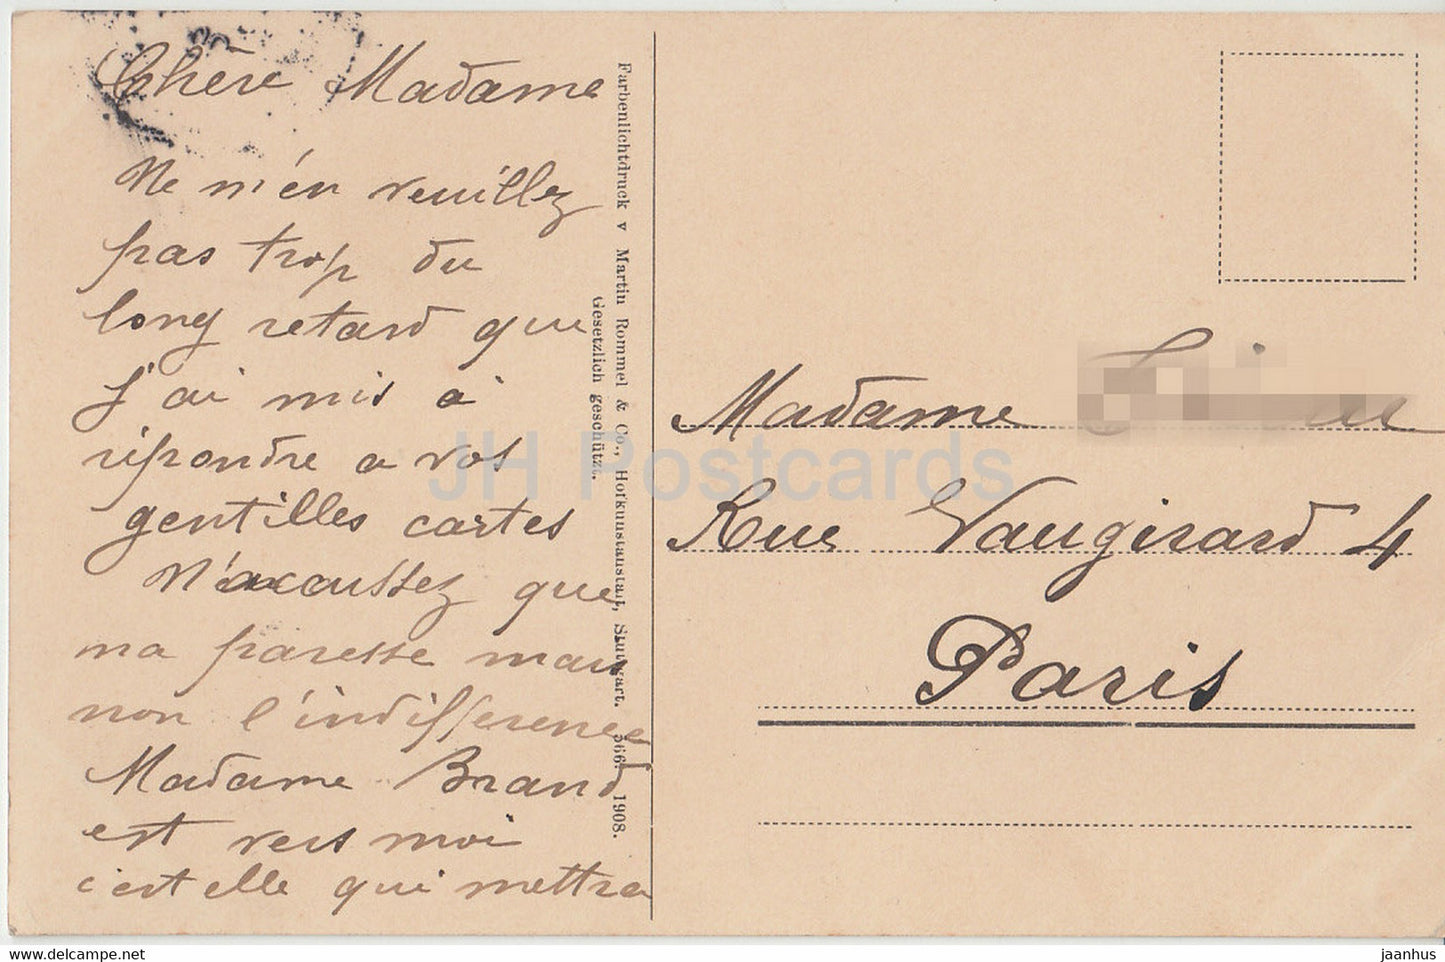 Chère Madame
Ne m'en veuillez
pas trop du
long retard que
j'ai mis à
répondre a vos
gentilles cartes
N'accusez que
ma paresse mais
non l'indifference
Madame Brand
est vers moi
c'est elle qui mettra
Farbenlichtdruck v Martin Rommel & Co., Hofkunstanstalt, Stuttgart. 566. 1908.
Gesetzlich geschützt.
Madame
Rue Vaugirard 4
Paris
JH Postcards
jaanhus